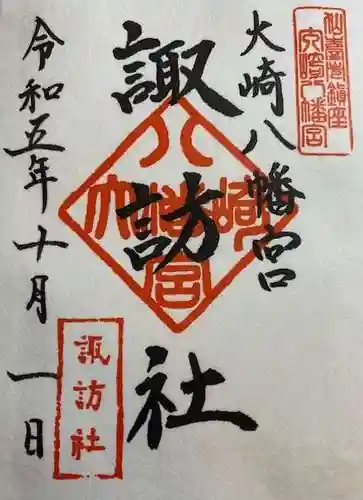 仙臺鎮座
大崎八幡宮
大崎八幡宮
諏訪社
大崎八幡宮
令和五年十月一日
諏訪社